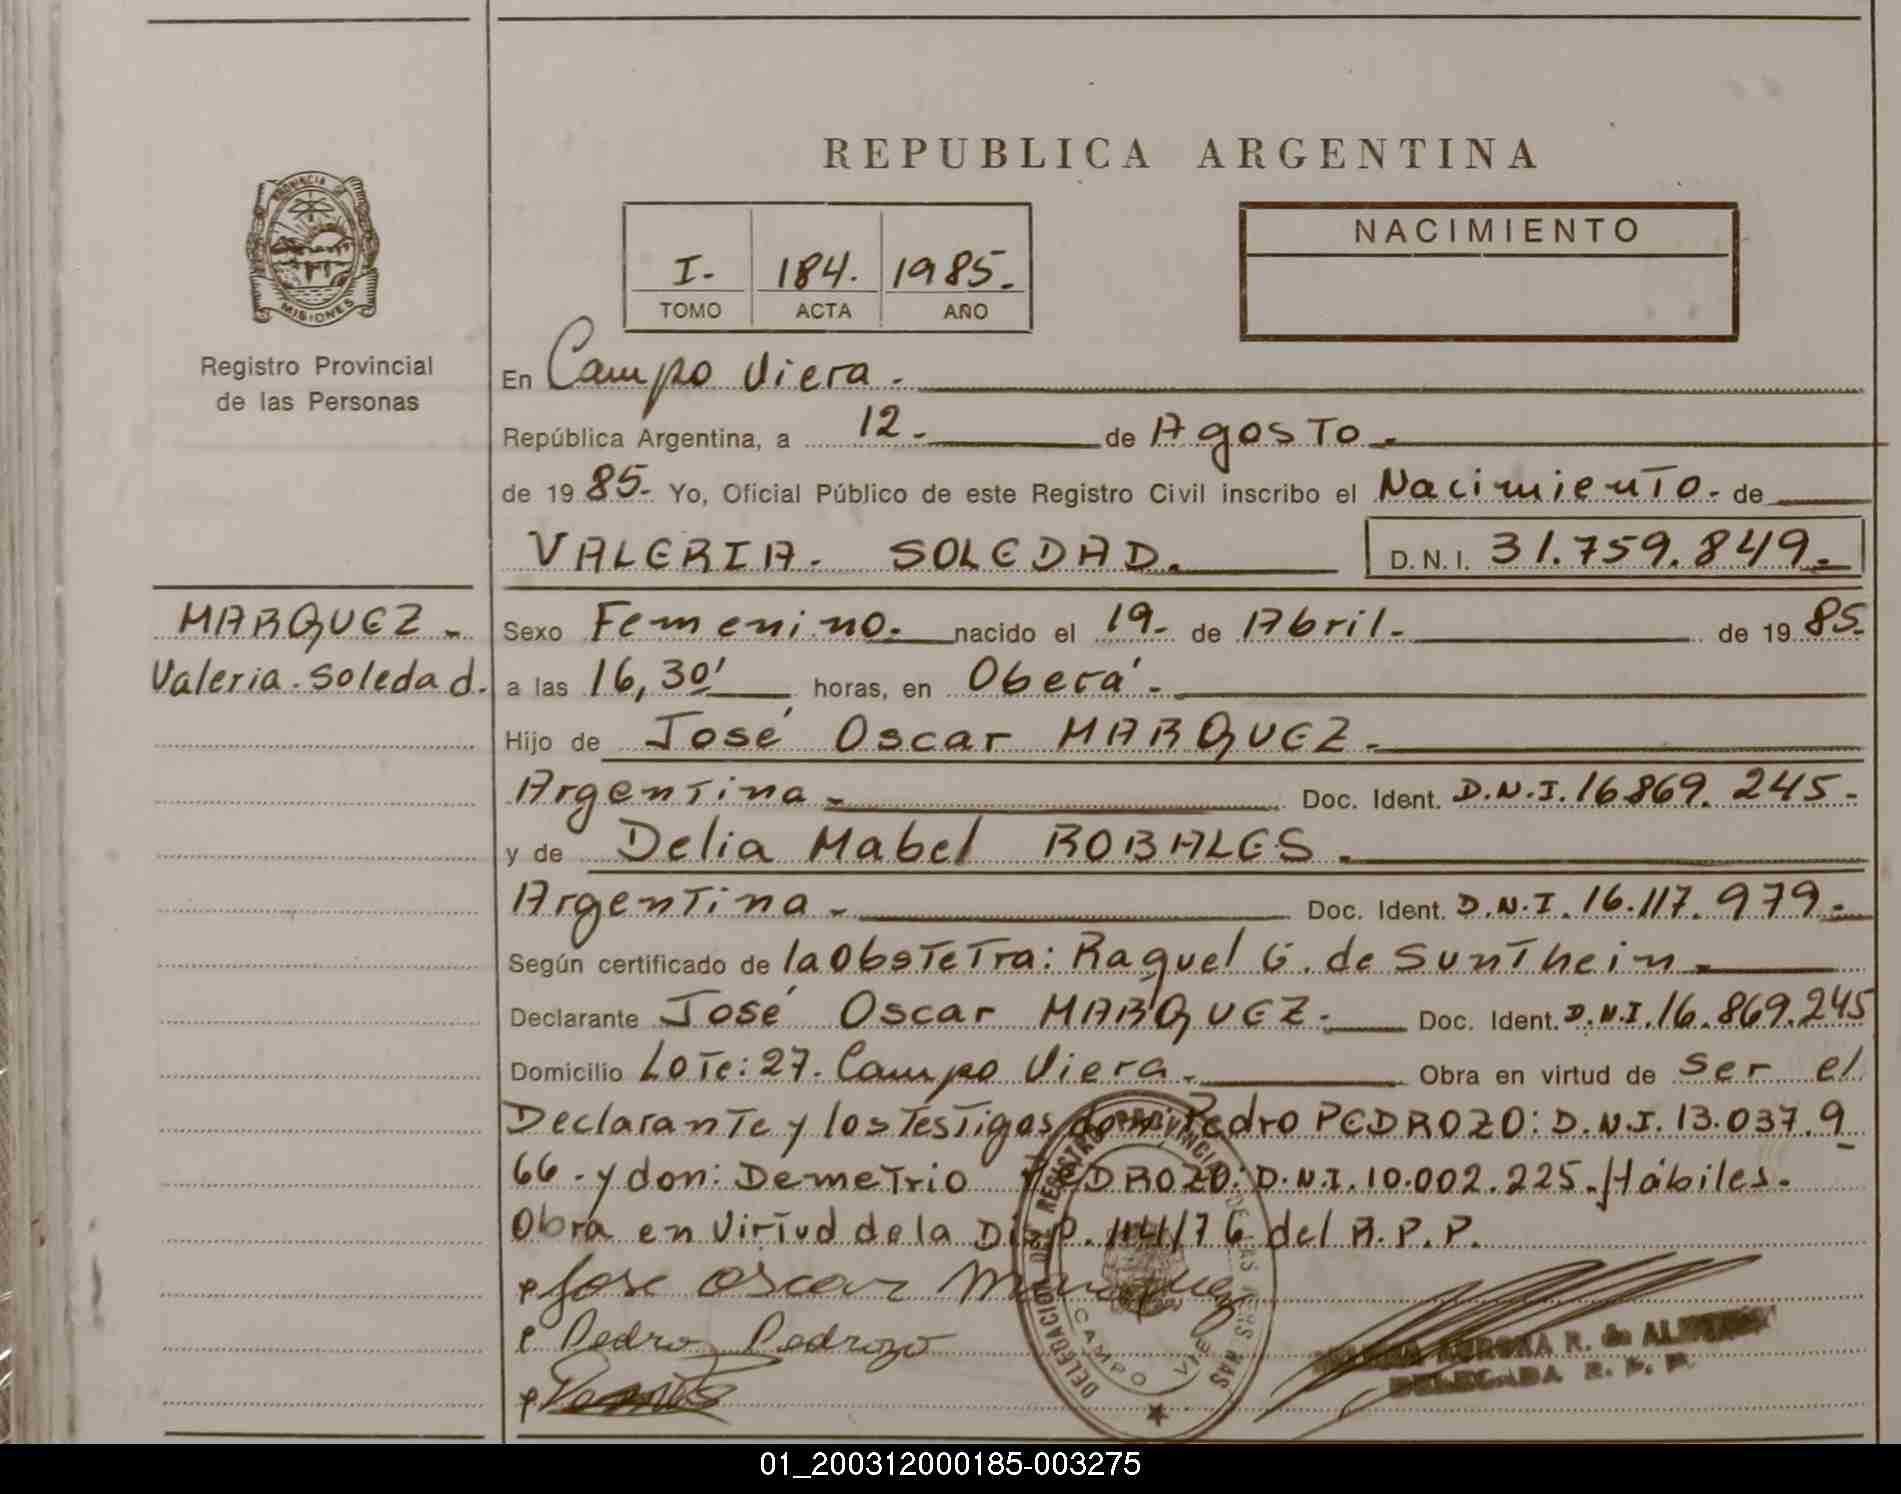 REPUBLICA ARGENTINA
PROVINCIA DE
MISIONES
Registro Provincial
de las Personas
I- 184. 1985.-
TOMO ACTA AÑO
NACIMIENTO
En Campo Viera.-
República Argentina, a 12.- de Agosto.-
de 1985.- Yo, Oficial Público de este Registro Civil inscribo el Nacimiento.- de
VALERIA. SOLEDAD.- D.N.I. 31.759.849.-
MARQUEZ.-
Valeria. Soledad.
Sexo Femenino.- nacido el 19.- de Abril.- de 1985.-
a las 16,30' horas, en Oberá.-
Hijo de José Oscar MARQUEZ.-
Argentina.- Doc. Ident. D.N.I. 16869.245.-
y de Delia Mabel ROBALES.-
Argentina.- Doc. Ident. D.N.I. 16.117.979.-
Según certificado de la Obstetra: Raquel G. de Suntheim.-
Declarante José Oscar MARQUEZ.- Doc. Ident. D.N.I. 16.869.245
Domicilio Lote: 27. Campo Viera.- Obra en virtud de ser el
Declarante y los Testigos don: Pedro PEDROZO: D.N.I. 13.037.9
66.- y don: Demetrio PEDROZO: D.N.I. 10.002.225. Hábiles.-
Obra en Virtud de la Disp. 114/76 del R.P.P.
Jose Oscar Marquez
Pedro Pedrozo
AURORA R. de
DELEGADA R. P. P.
DELEGACION DEL REGISTRO PROVINCIAL DE LAS PERSONAS
CAMPO VIERA
01_200312000185-003275